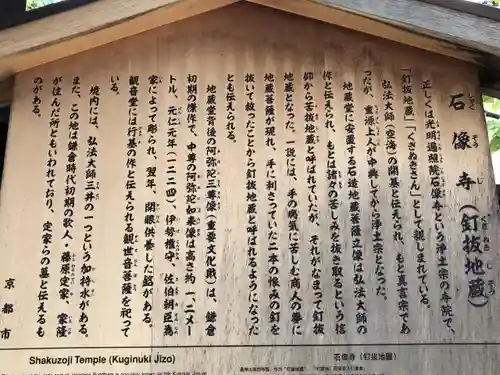 石像寺（釘抜地蔵）
しゃくぞうじ くぎぬきじぞう
正しくは光明遍照院石像寺という浄土宗の寺院で、
「釘抜地蔵」（くぎぬきさん）として親しまれている。
弘法大師（空海）の開基と伝えられ、もと真言宗であ
ったが、重源上人が中興してから浄土宗となった。
地蔵堂に安置する石造地蔵菩薩立像は弘法大師の
作と伝えられ、もとは諸々の苦しみを抜き取るという信
仰から苦抜地蔵と呼ばれていたが、それがなまって釘抜
地蔵となった。一説には、手の病気に苦しむ商人の夢に
地蔵菩薩が現れ、手に刺さっていた二本の恨みの釘を
抜いて救ったことから釘抜地蔵と呼ばれるようになった
とも伝えられる。
地蔵堂背後の阿弥陀三尊像（重要文化財）は、鎌倉
初期の傑作で、中尊の阿弥陀如来像は高さ約一、二メー
トル、元仁元年（一二二四）、伊勢権守、佐伯朝臣為
家によって彫られ、翌年、開眼供養した銘がある。
観音堂には行基の作と伝えられる観世音菩薩を祀って
いる。
境内には、弘法大師三井の一つという加持水がある。
また、この地は鎌倉時代初期の歌人・藤原定家、家隆
が住んだ所ともいわれており、定家らの墓と伝えるも
のがある。
京都市
Shakuzoji Temple (Kuginuki Jizo)
石像寺（釘抜地藏）